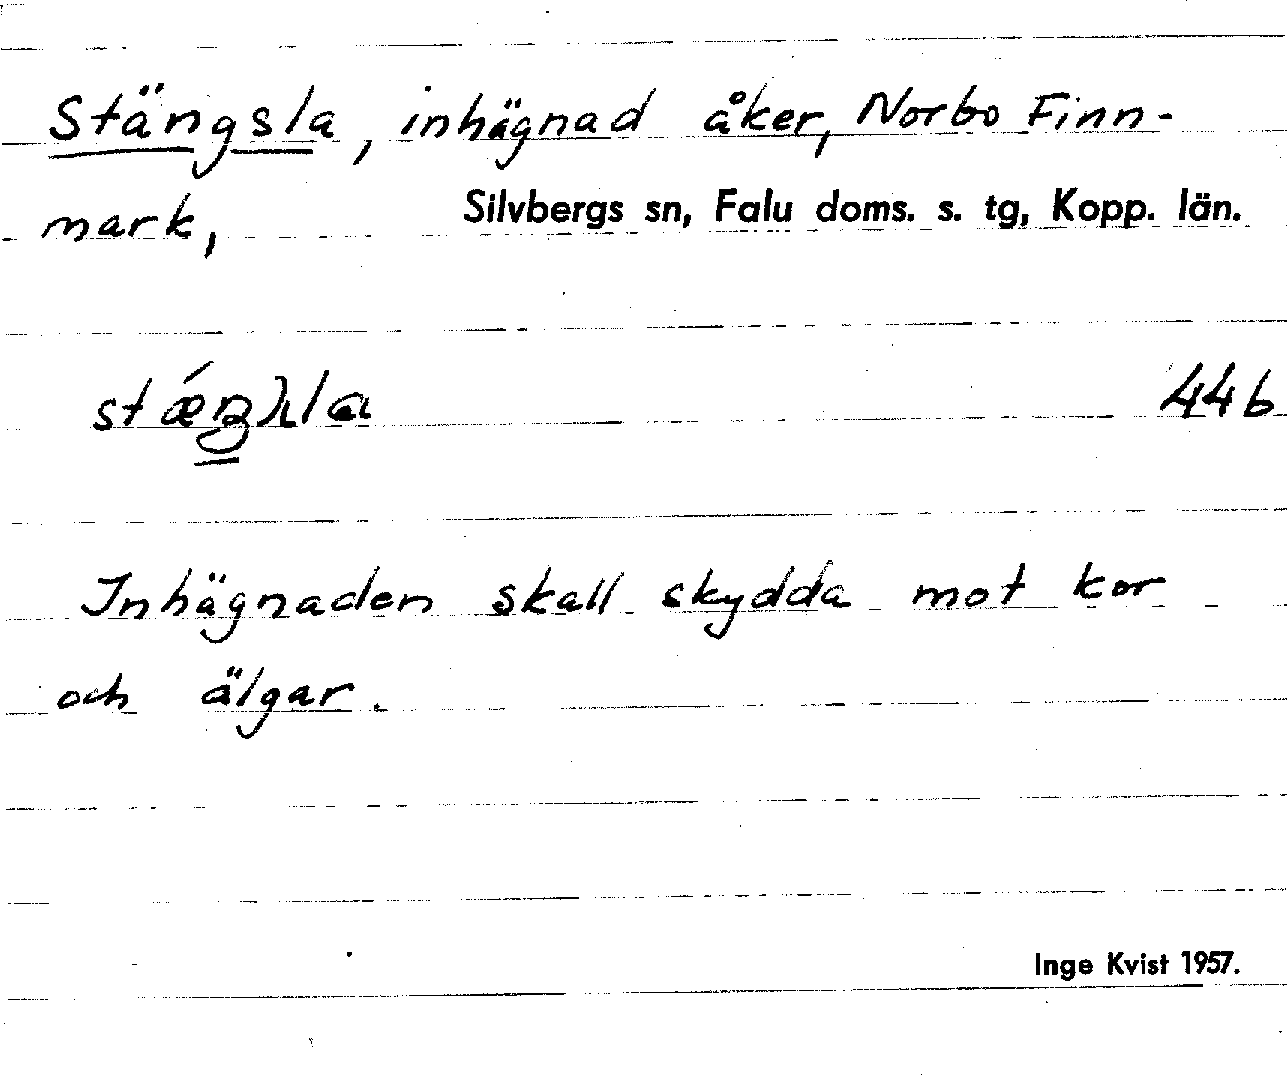 Stängsla, inhägnad åker, Norbo Finn-
mark, Silvbergs sn, Falu doms. s. tg, Kopp. län.
44b
Inhägnaden skall skydda mot kor
och älgar.
Inge Kvist 1957.